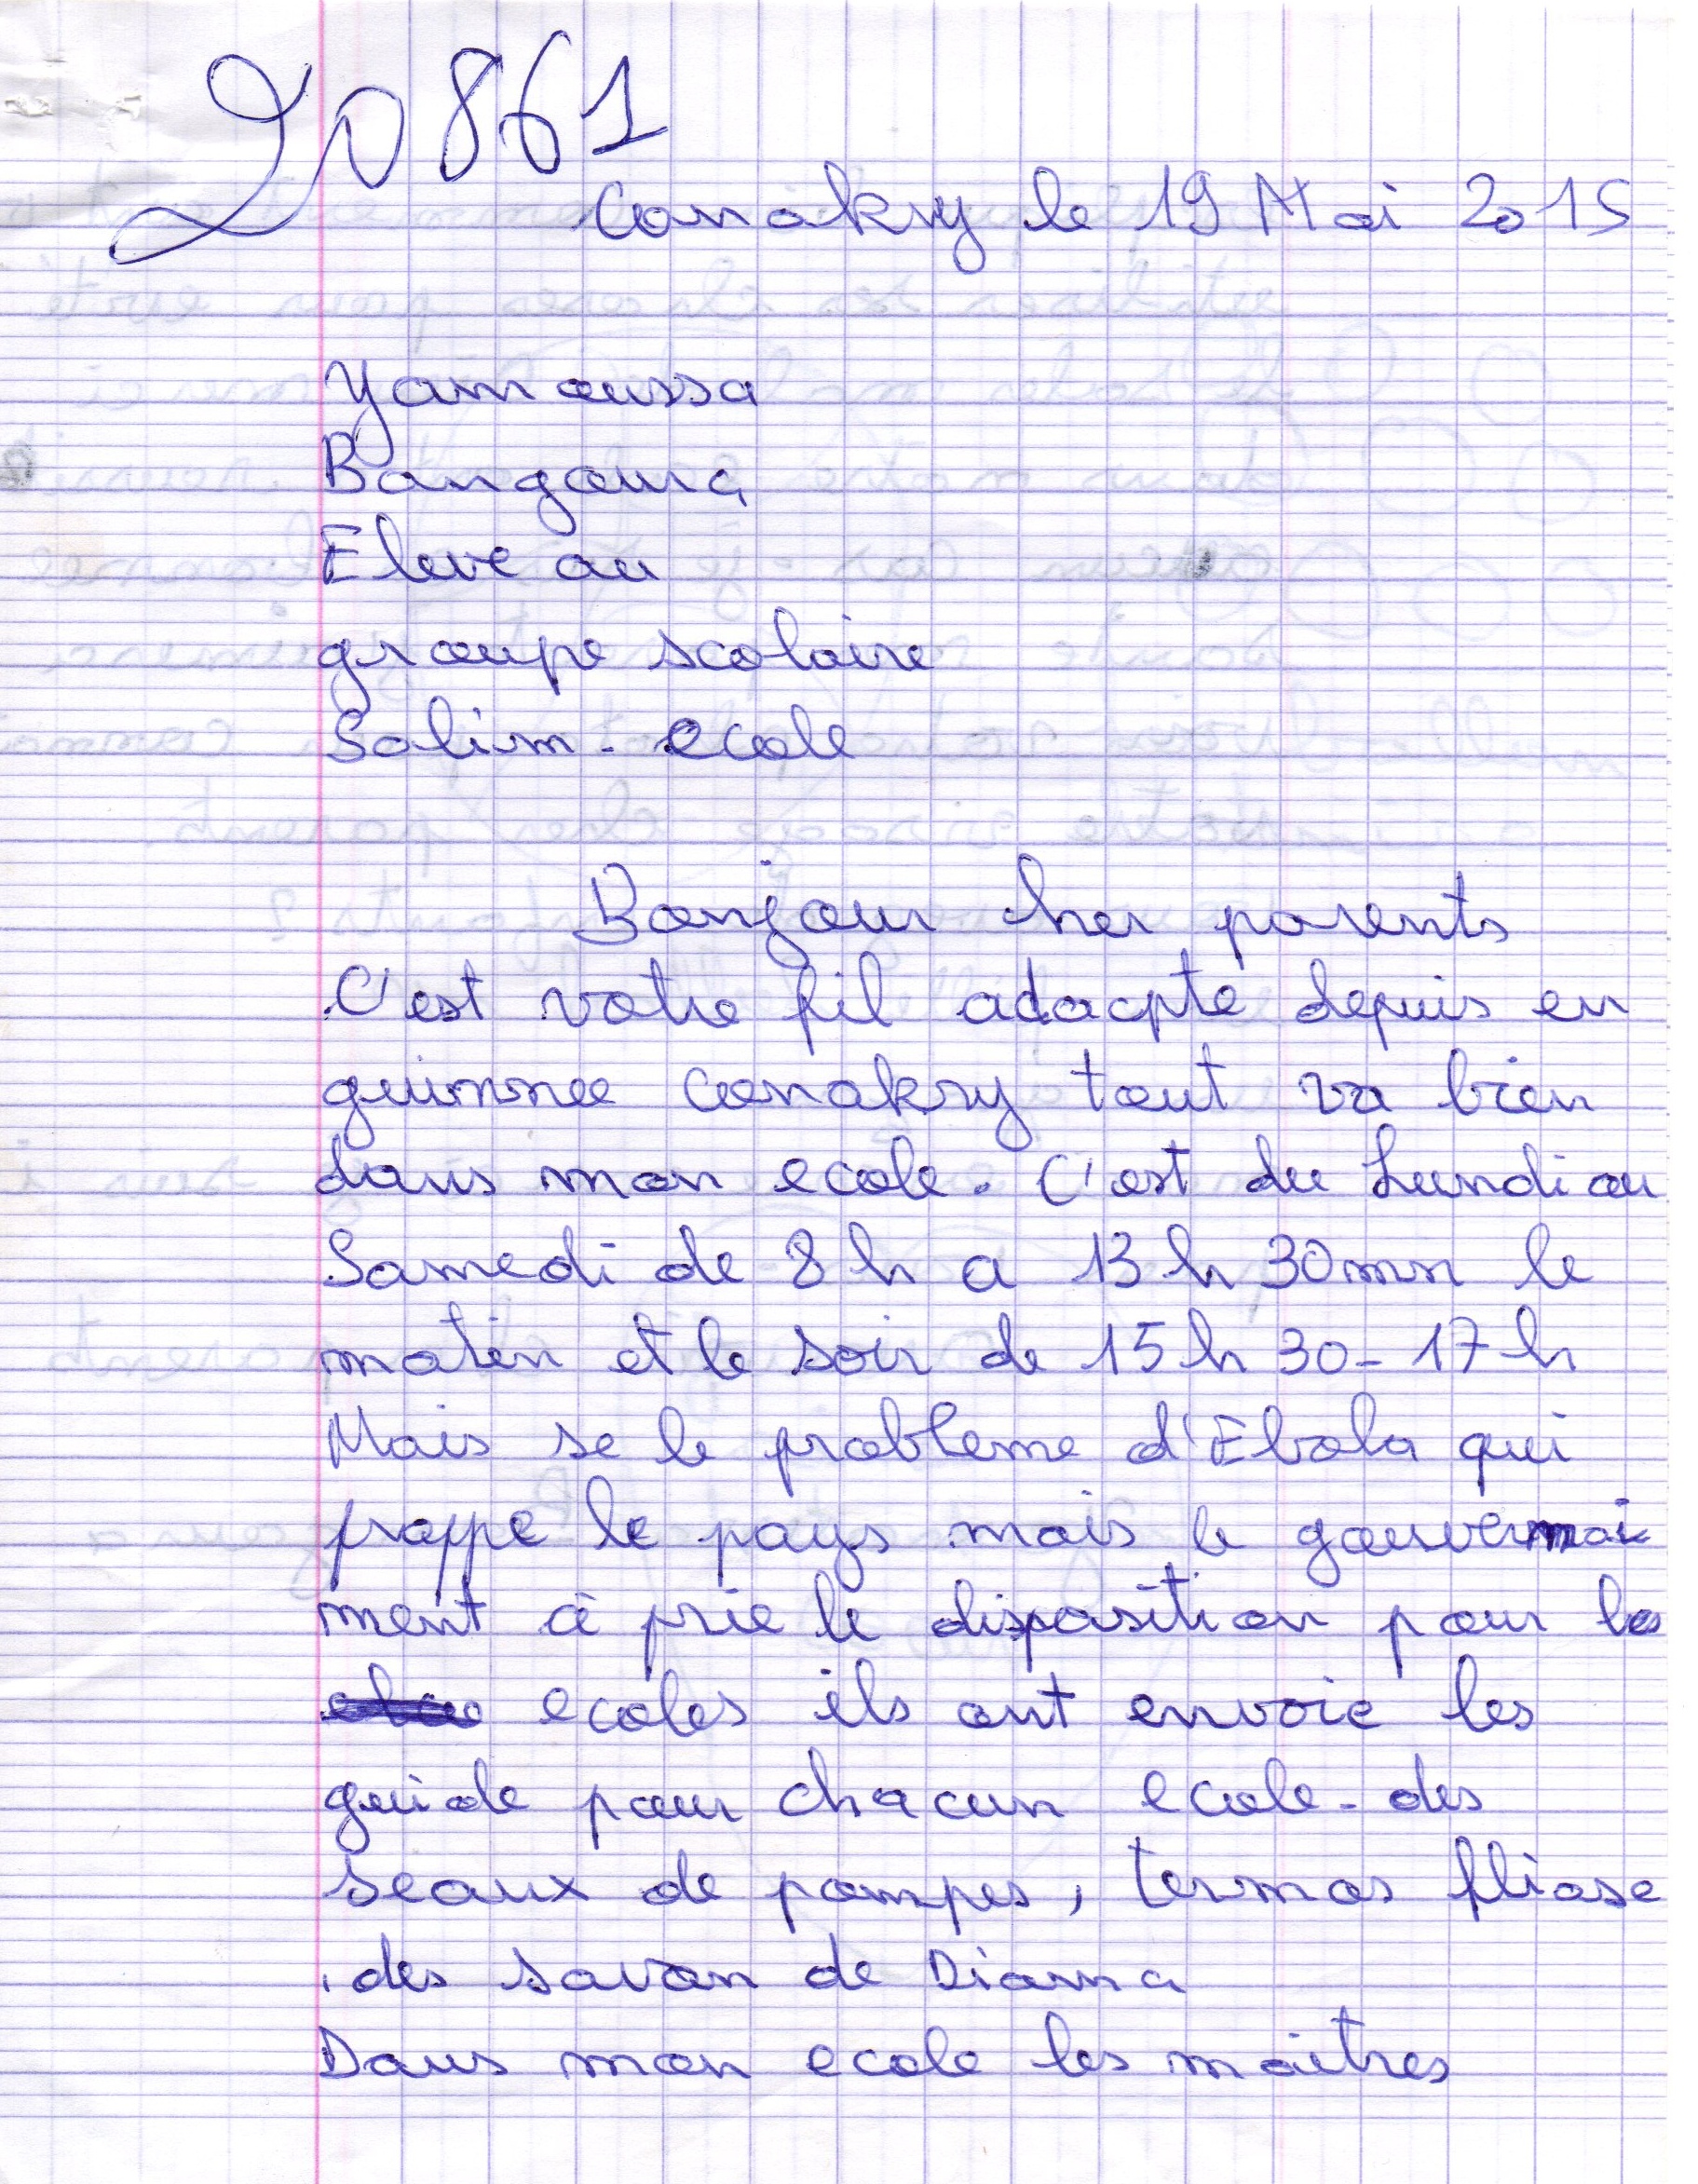 20861
Conakry le 19 Mai 2015
Yamoussa
Bangoura
Eleve au
groupe scolaire
Solim - ecole
Bonjour cher parents
C'est votre fil adacpte depuis en
guinnee Conakry tout va bien
dans mon ecole. C'est du Lundi au
Samedi de 8h a 13h 30mn le
matin et le soir de 15h 30 - 17h
Mais se le probleme d'Ebola qui
frappe le pays mais le gouvernai
ment à prie le disposition pour les
ecoles ils ont envoie les
guide pour chacun ecole - des
seaux de pompes, termos fliase
, des savon de Diama
Dans mon ecole les maitres